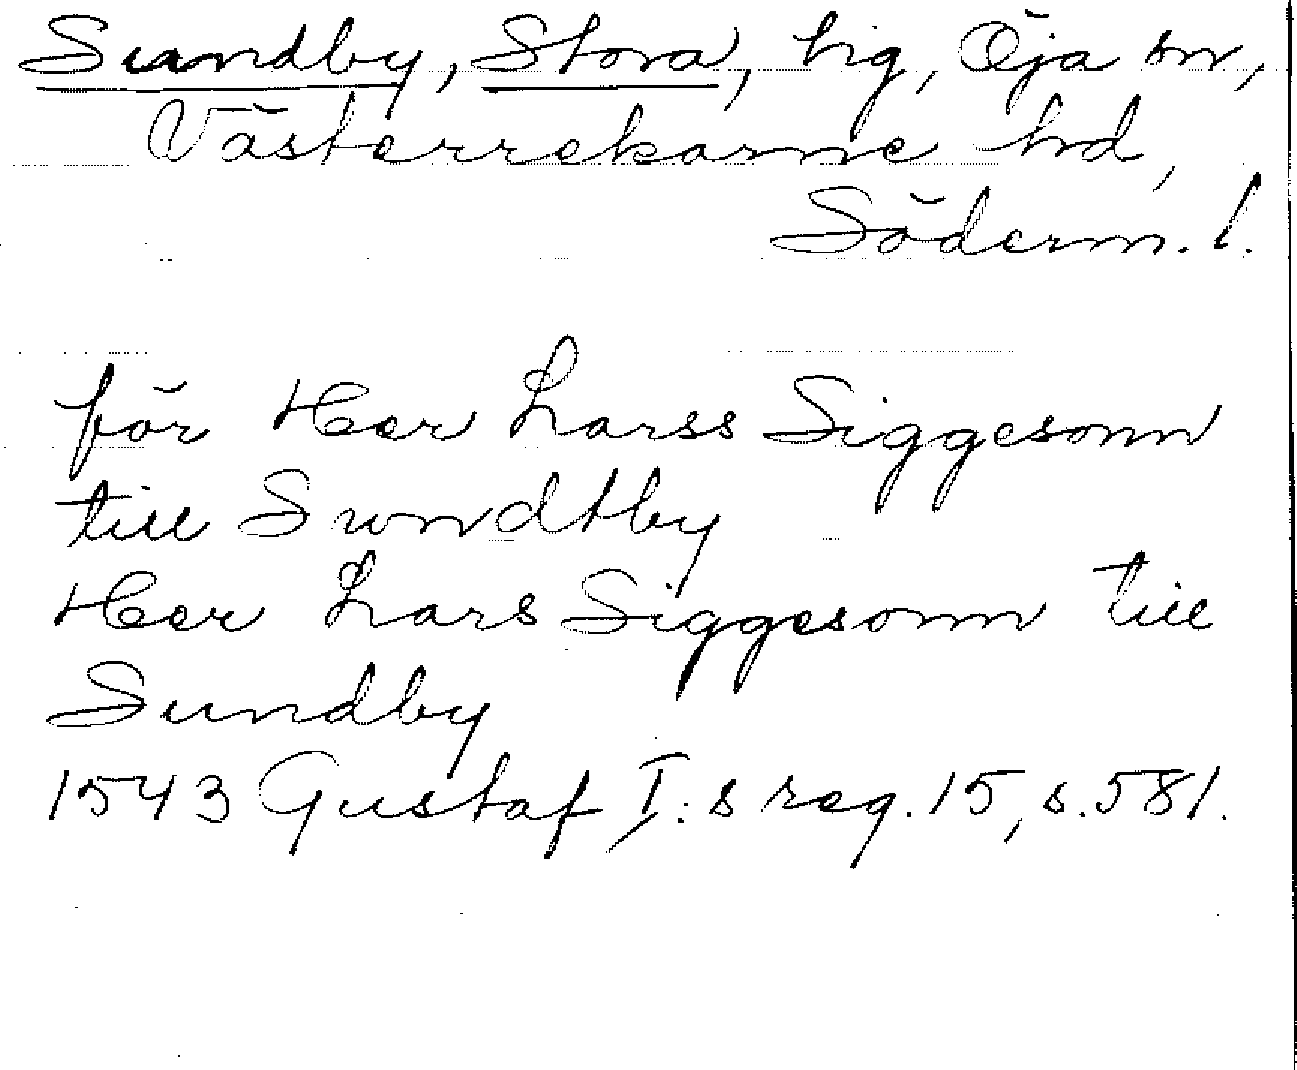 Sundby, Stora, hg, Öja sn,
Västerrekarne hd,
Söderm. l.
för Her Larss Siggesonn
till Swndtby
Her Lars Siggesonn till
Sundby
1543 Gustaf I:s reg. 15, s. 581.